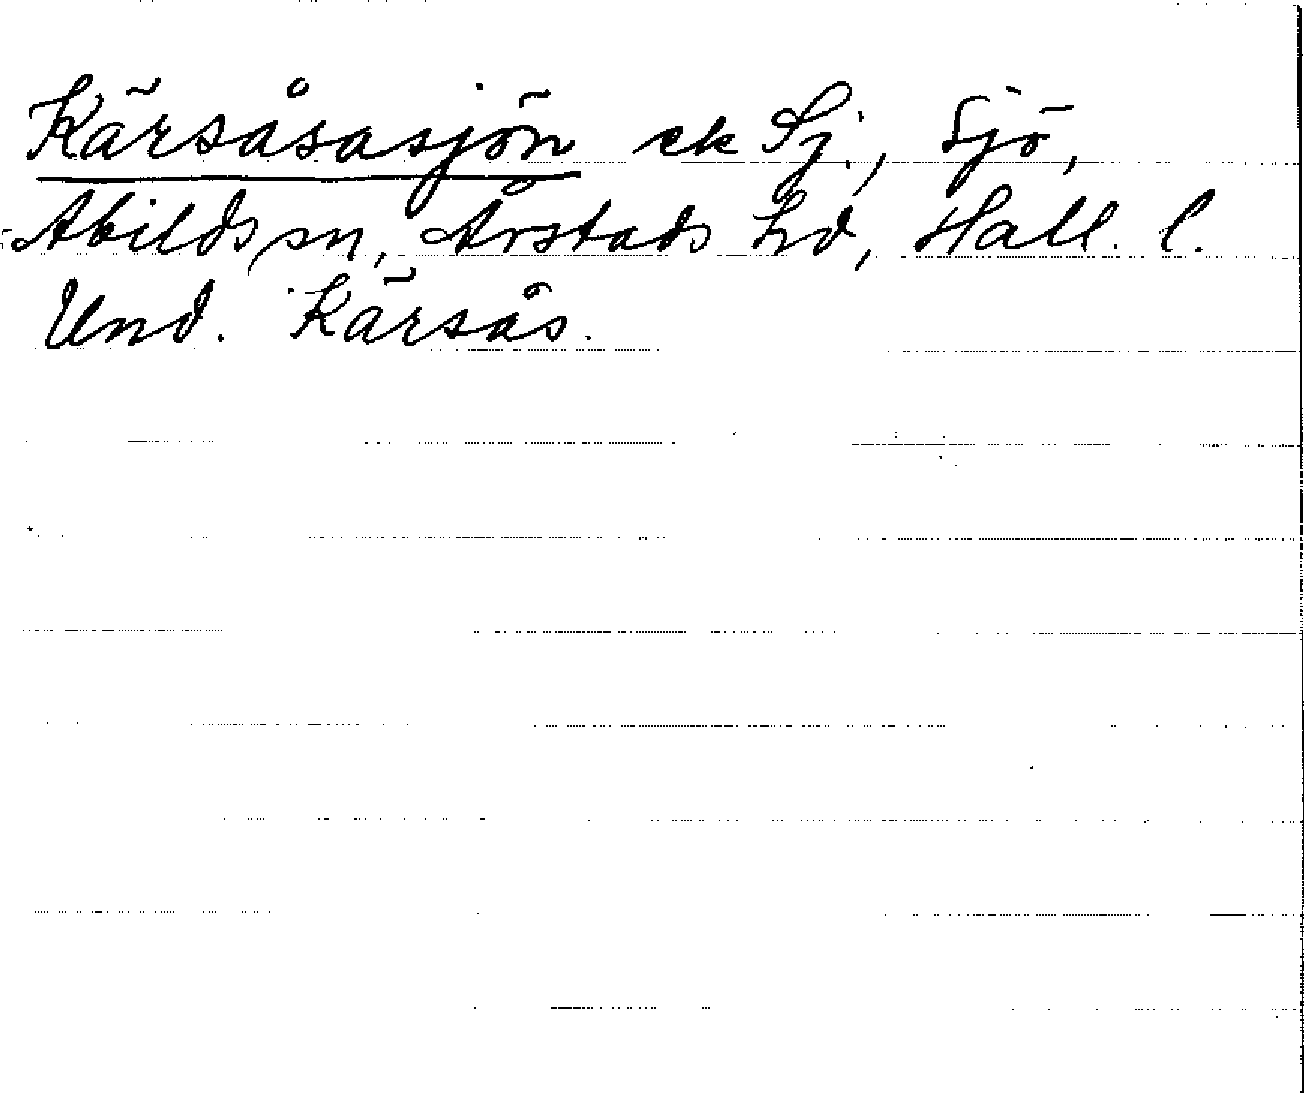 Kärsåsasjön ek Sj., Sjö,
Abilds sn, Årstads hd, Hall. l.
Und. Kärsås.